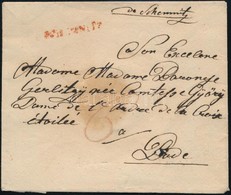 de Schemnitz
SCHEMNITZ
Son Excelence
Madame Madame Baronesse
Gerliczy née Comtesse Győry
Dame de l'ordre de la Croix
étoilée
a
Bude